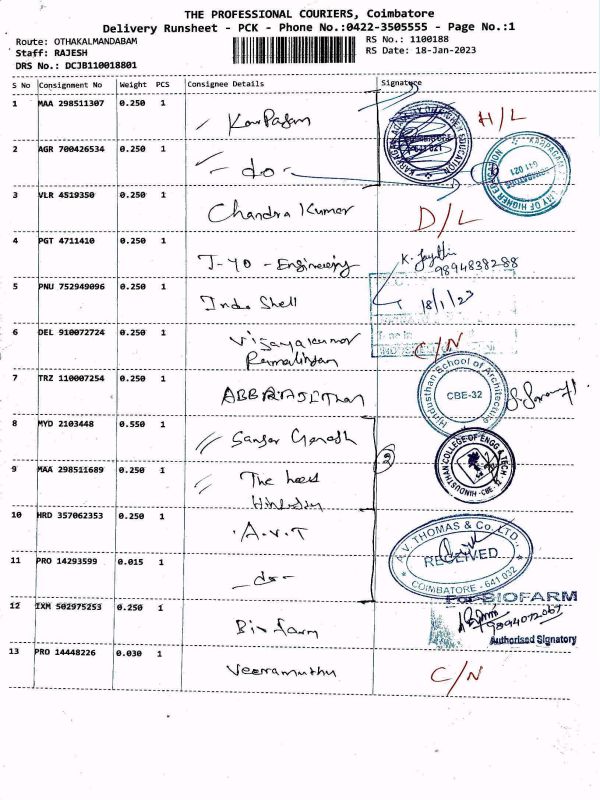 THE PROFESSIONAL COURIERS, Coimbatore
Delivery Runsheet - PCK - Phone No.:0422-3505555 - Page No.:1
Route: OTHAKALMANDABAM
RS No.: 1100188
Staff: RAJESH
RS Date: 18-Jan-2023
DRS No.: DCJB110018801
S No Consignment No Weight PCS Consignee Details Signature
1 MAA 298511307 0.250 1 Karpagam H/L
KARPAGAM ACADEMY OF HIGHER EDUCATION
641 021
2 AGR 700426534 0.250 1 - do -
OF HIGHER EDUCATION
COIMBATORE
641 021
3 VLR 4519350 0.250 1 Chandra Kumar D/L
4 PGT 4711410 0.250 1 J-40 - Engineering
9894838288
5 PNU 752949096 0.250 1 Indo Shell 18/1/23
6 DEL 910072724 0.250 1 Vijayakumar C/N
7 TRZ 110007254 0.250 1
Hindusthan School of Architecture
CBE-32
8 MYD 2103448 0.550 1
HINDUSTHAN COLLEGE OF ENGG & TECH
CBE - 32
9 MAA 298511689 0.250 1 The head
10 HRD 357062353 0.250 1 A.V.T
A.V. THOMAS & Co. LTD.,
RECEIVED
COIMBATORE - 641 032
11 PRO 14293599 0.015 1 - do -
For BIOFARM
12 IXM 502975253 0.250 1 Bio farm
Authorised Signatory
13 PRO 14448226 0.030 1 Veeramuthu C/N